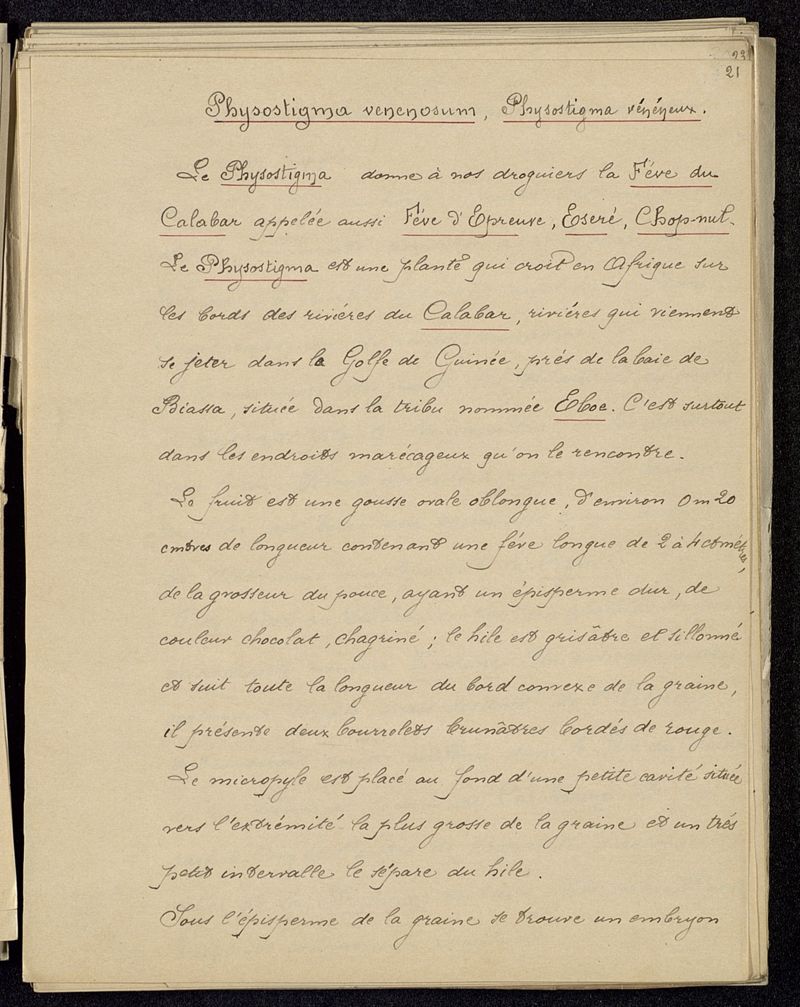 23
21
Physostigma venenosum, Physostigma vénéneux.
Le Physostigma donne à nos droguiers la Féve du
Calabar appelée aussi Féve d'Epreuve, Eseré, Chop-nut.
Le Physostigma est une plante qui croit en Afrique sur
les bords des riviéres du Calabar, riviéres qui viennent
se jeter dans la Golfe de Guinée, prés de la baie de
Biassa, située dans la tribu nommée Eboe. C'est surtout
dans les endroits marécageux qu'on le rencontre.
Le fruit est une gousse ovale oblongue, d'environ 0m20
cmtres de longueur contenant une féve longue de 2 à 4 ctmétres,
de la grosseur du pouce, ayant un épisperme dur, de
couleur chocolat, chagriné; le hile est grisâtre et sillonné
et suit toute la longueur du bord convexe de la graine,
il présente deux bourrelets brunâtres bordés de rouge.
Le micropyle est placé au fond d'une petite cavité située
vers l'extrémité la plus grosse de la graine et un trés
petit intervalle le sépare du hile.
Sous l'épisperme de la graine se trouve un embryon